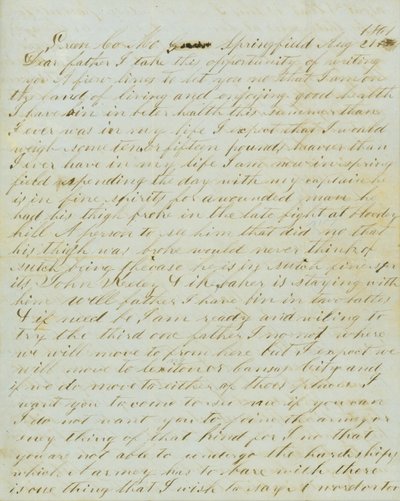 1861
Green Co Mo Springfield Aug 21st
Dear father I take this opportunity of writing
you A few lines to let you no that I am on
the land of living and enjoying good health
I have bin in beter health this summer than
I ever was in my life I expect that I would
weigh some ten or fifteen pounds heavier than
I ever have in my life I am now in spring
field spending the day with my captain he
is in fine spirits for a wounded man he
had his thigh broke in the late fight at bloody
hill A person to see him that did no that
his thigh was broke would never think of
such being the case he is in such fine spir
its John & is staying with
him Well father I have bin in two battles
& if need be I am ready and wiling to
try the third one father I no not where
we will move to from here but I expect we
will move to lexiton or cansas City and
if we do move to either of thoes places I
want you to come to see me if you can
I do not want you to joine the army or
eny thing of that kind for I no that
you are not able to undergo the hardships
which A army has to bare with there
is one thing that I wish to say A word or too